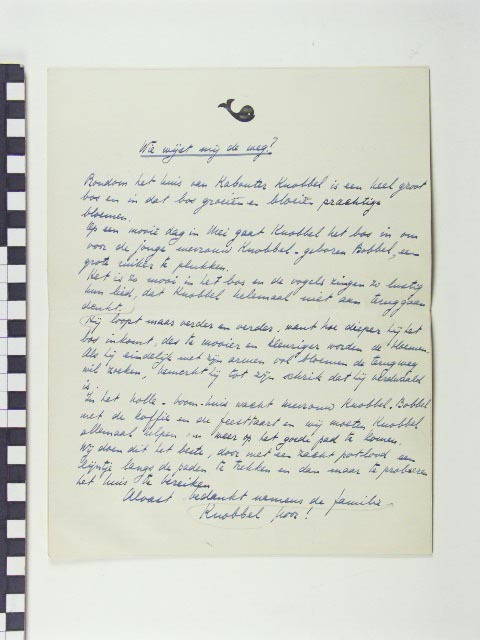 Wie wijst mij de weg?
Rondom het huis van Kabouter Knobbel is een heel groot
bos en in dat bos groeien en bloeien prachtige
bloemen.
Op een mooie dag in Mei gaat Knobbel het bos in om
voor de jonge mevrouw Knobbel - geboren Bobbel, een
grote ruiker te plukken.
Het is zo mooi in het bos en de vogels zingen zo lustig
hun lied, dat Knobbel helemaal niet aan teruggaan
denkt.
Hij loopt maar verder en verder. want hoe dieper hij het
bos inkomt, des te mooier en kleuriger worden de bloemen.
Als hij eindelijk met zijn armen vol bloemen de terugweg
wil zoeken, bemerkt hij tot zijn schrik dat hij verdwaald
is.
In het holle-boom-huis wacht mevrouw Knobbel-Bobbel
met de koffie en de feesttaart en wij moeten Knobbel
allemaal helpen om weer op het goede pad te komen.
Wij doen dit het beste, door met een zacht potlood een
lijntje langs de paden te trekken en dan maar te proberen
het huis te bereiken.
Alvast bedankt namens de familie
Knobbel, hoor!